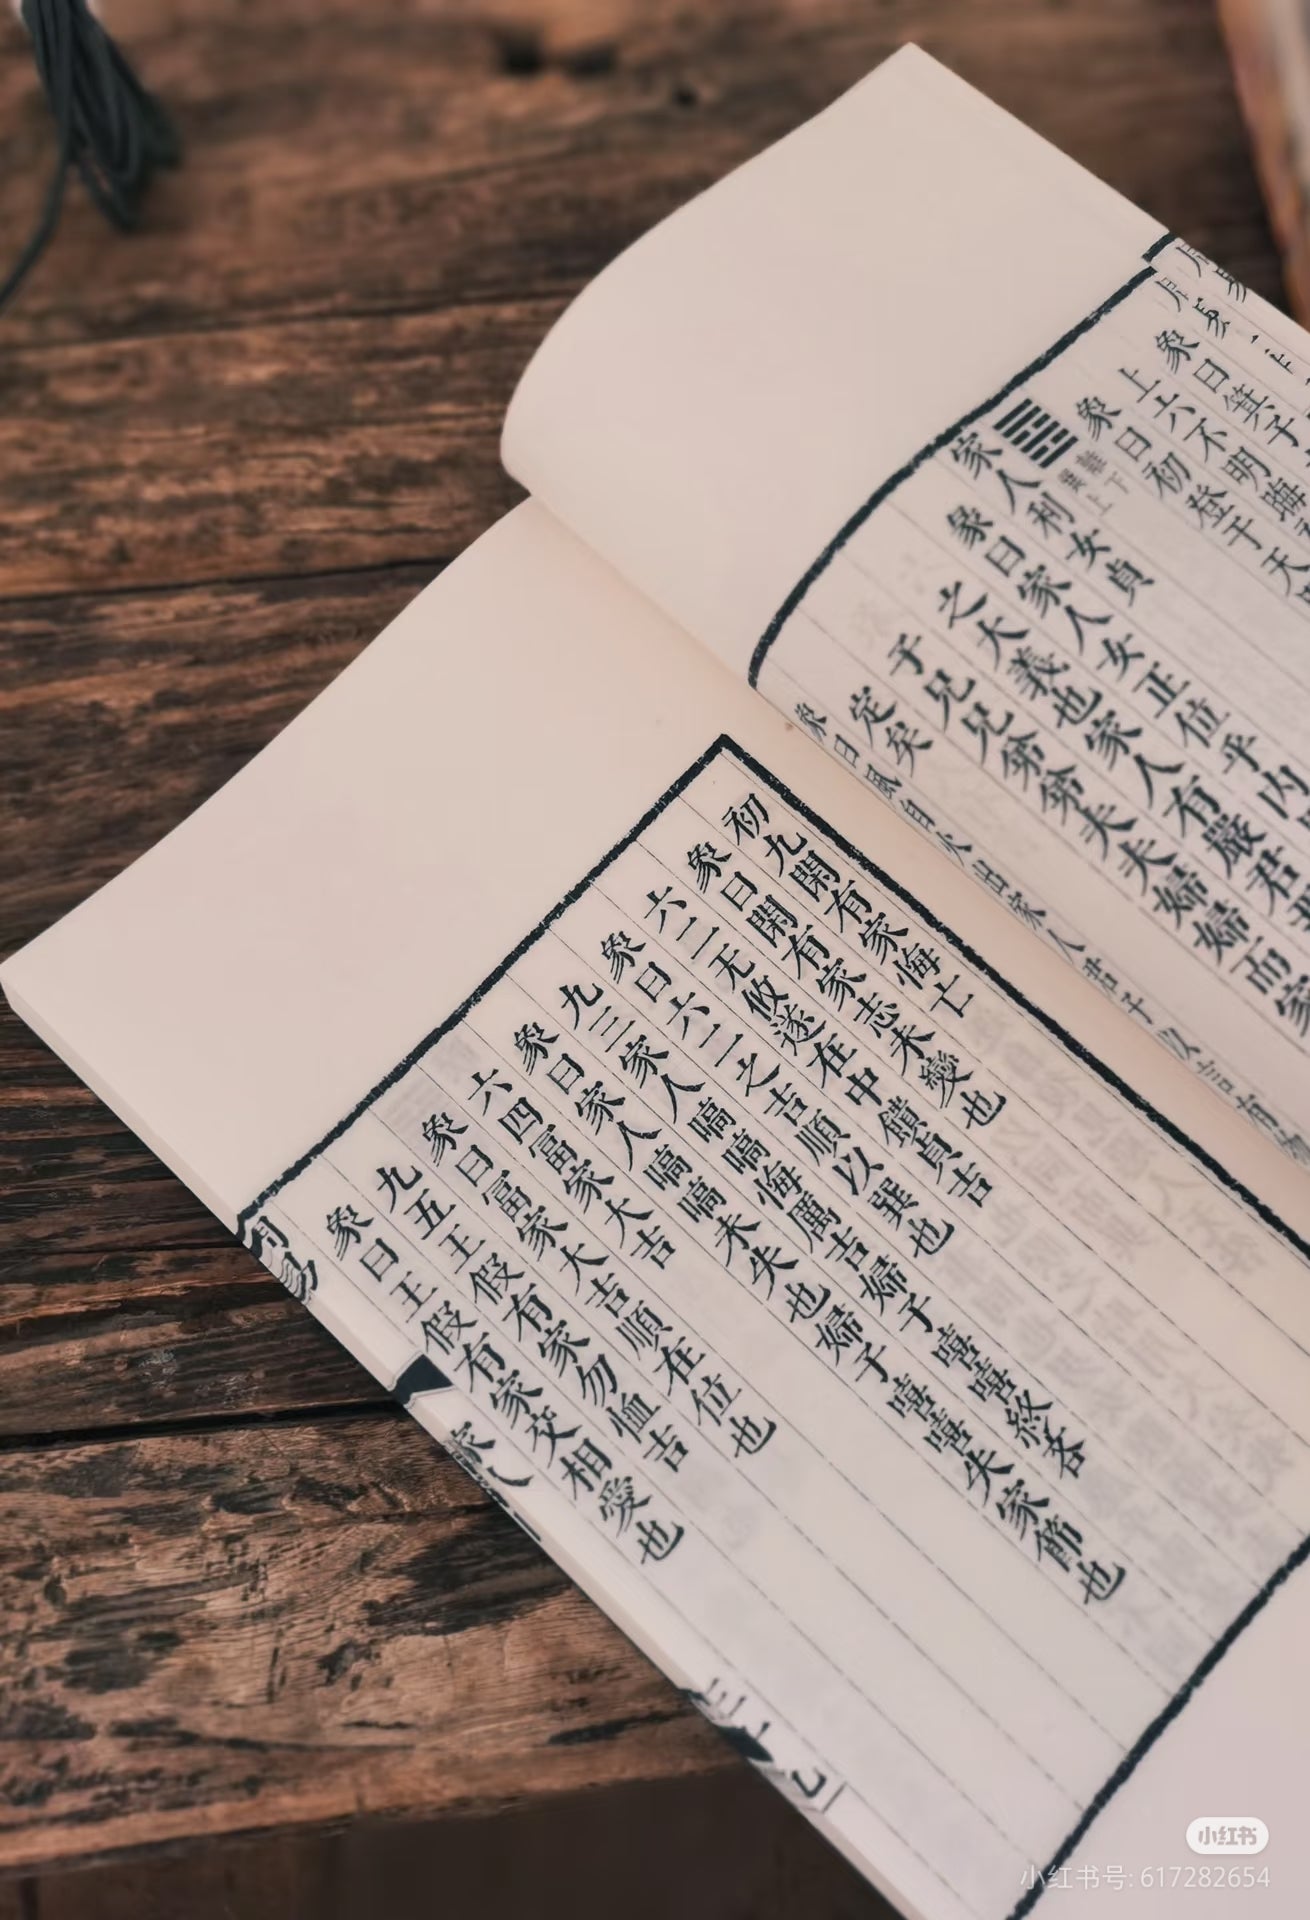 周易
象曰箕子
上六不明晦
象曰初登于天
離下
巽上
家人利女貞
彖曰家人女正位乎内
之大義也家人有嚴君
于兄兄弟弟夫夫婦婦而家
定矣
象曰風自火出家人君子以言有物
初九閑有家悔亡
象曰閑有家志未變也
六二无攸遂在中饋貞吉
象曰六二之吉順以巽也
九三家人嗃嗃悔厲吉婦子嘻嘻終吝
象曰家人嗃嗃未失也婦子嘻嘻失家節也
六四富家大吉
象曰富家大吉順在位也
九五王假有家勿恤吉
象曰王假有家交相愛也
周易
家人
小红书
小红书号: 617282654